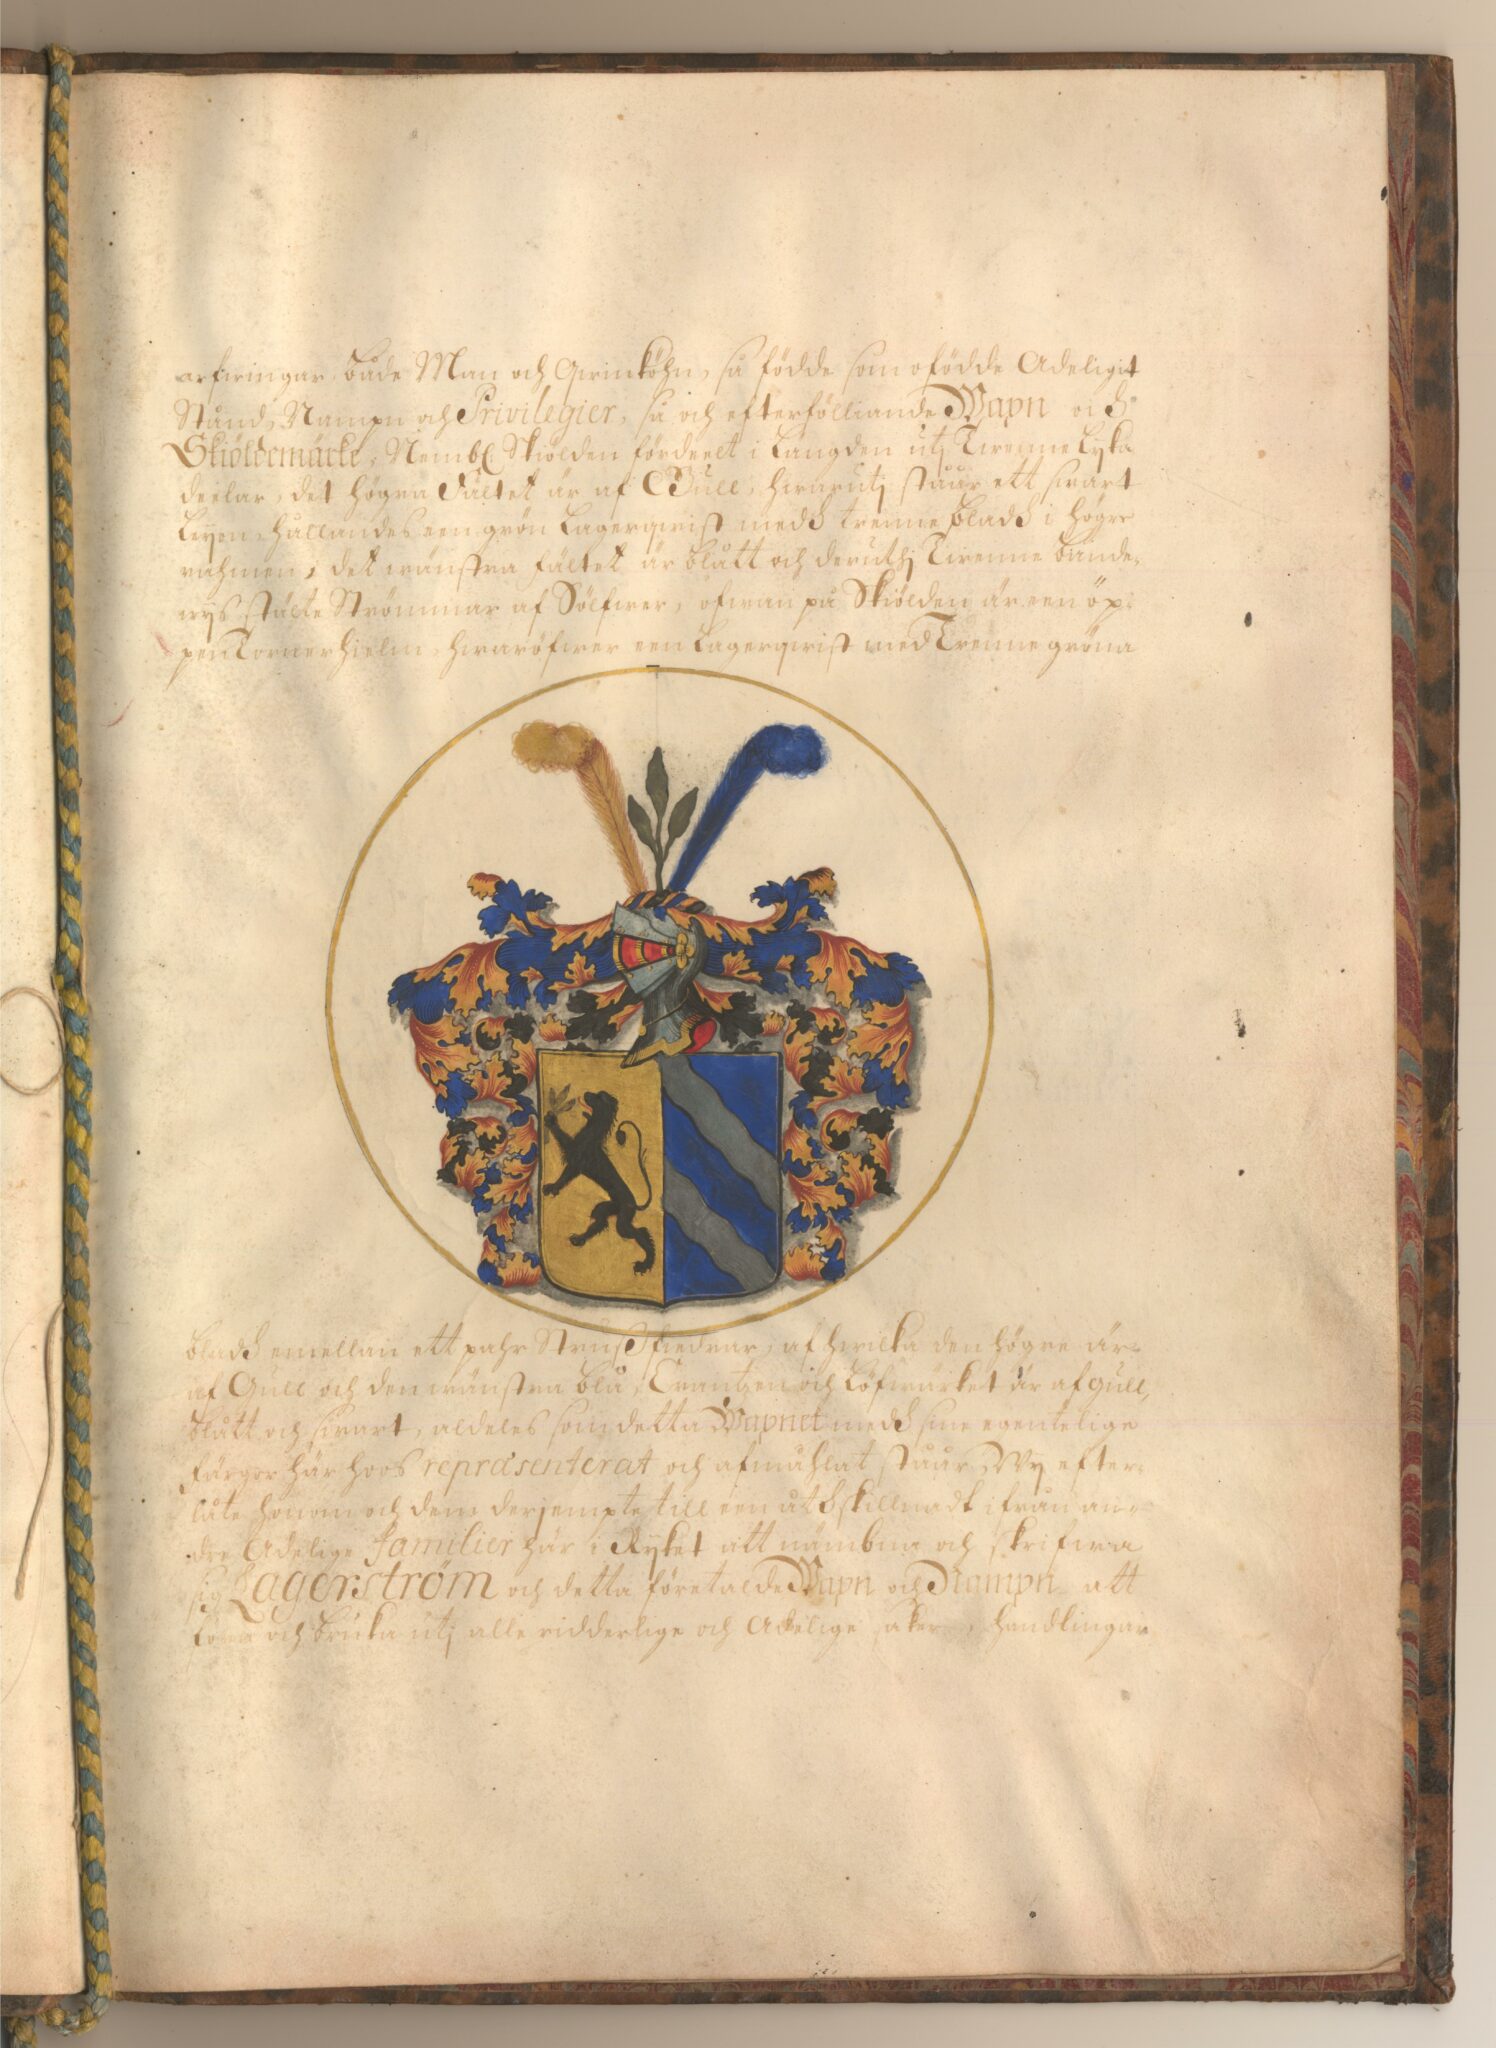 arfwingar, både Man och Qwinköhn, så födde som ofödde Adeligit
Stånd, Nampn och Privilegier, så och efterfölliande Wapn och
Skiöldemärke, Nembl. Skiölden fördeelt i Längden utj Twenne Lyka
deelar, det högra Fältet är af Gull, hwarutj stäår ett swart
Leyon, hållandes een grön Lagerqwist medh trenne bladh i högre
rahmen, det wänstra fältet är blått och deruthj Twenne bände-
wys stälte Strömmar af Sölfwer, ofwan på Skiölden är een öp-
pen Tornerhielm, hwaröfwer een Lagerqwist med Trenne gröna
bladh emellan ett pahr Strussfiedrar, af hwilka den högre är
af Gull och den wänstra blå, Crantzen och Löfwärket är af gull,
blått och swart, aldeles som detta Wapnet medh sine egentelige
färgor här hoos repræsenterat och afmåhlat stäår, Wy efter-
låte honom och dem derjempte till een åthskillnadh ifrån an-
dre Adelige familier här i Ryket att nämbna och skrifwa
sig Lagerström och detta företalde Wapn och Nampn att
föra och bruka utj alle ridderlige och Adelige saker, handlingar